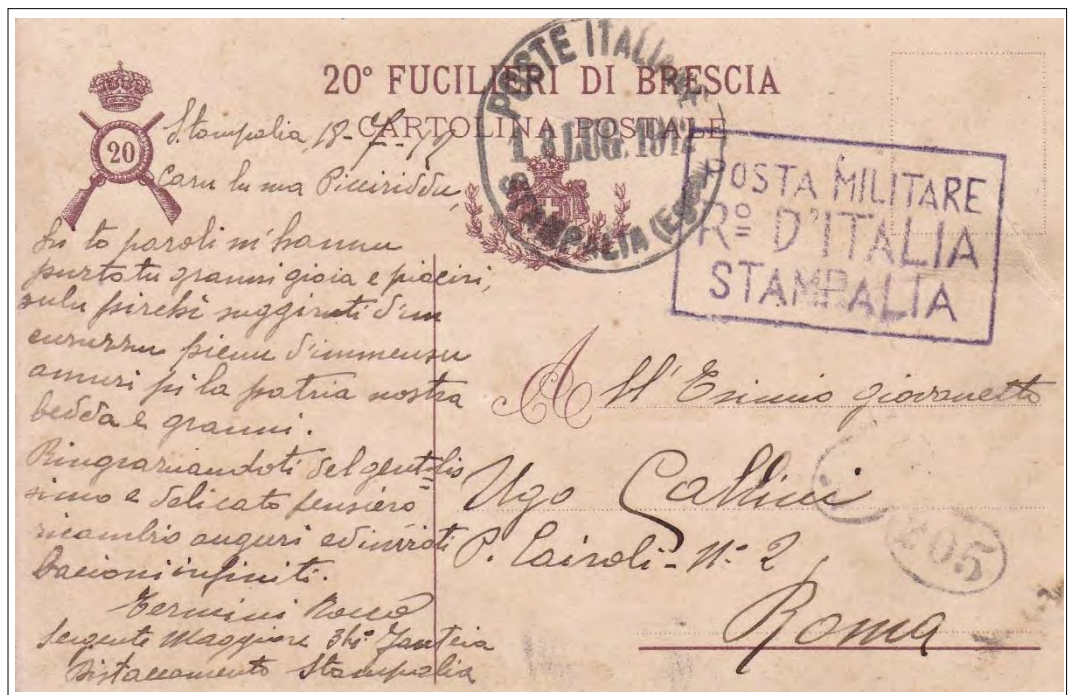 20° FUCILIERI DI BRESCIA
CARTOLINA POSTALE
20
POSTE ITALIANE
18 LUG. 1912
STAMPALIA (Egeo)
POSTA MILITARE
Rº D'ITALIA
STAMPALIA
Stampalia, 18-7-
Caru lu ma Picciriddu,
Sti to paroli m'hannu
purtatu granni gioia e piaciri,
sulu pirchì suggiruti d'un
curuzzu pienu d'immensu
amuri pi la patria nostra
bedda e granni.
Ringraziandoti del gentilis
simo e delicato pensiero
ricambio auguri ed invioti
bacioni infiniti.
Termini Rocco
Sergente Maggiore Fanteria
Distaccamento Stampalia
All' Esimio giovanetto
Ugo
P. Cairoli - N. 2
Roma
205